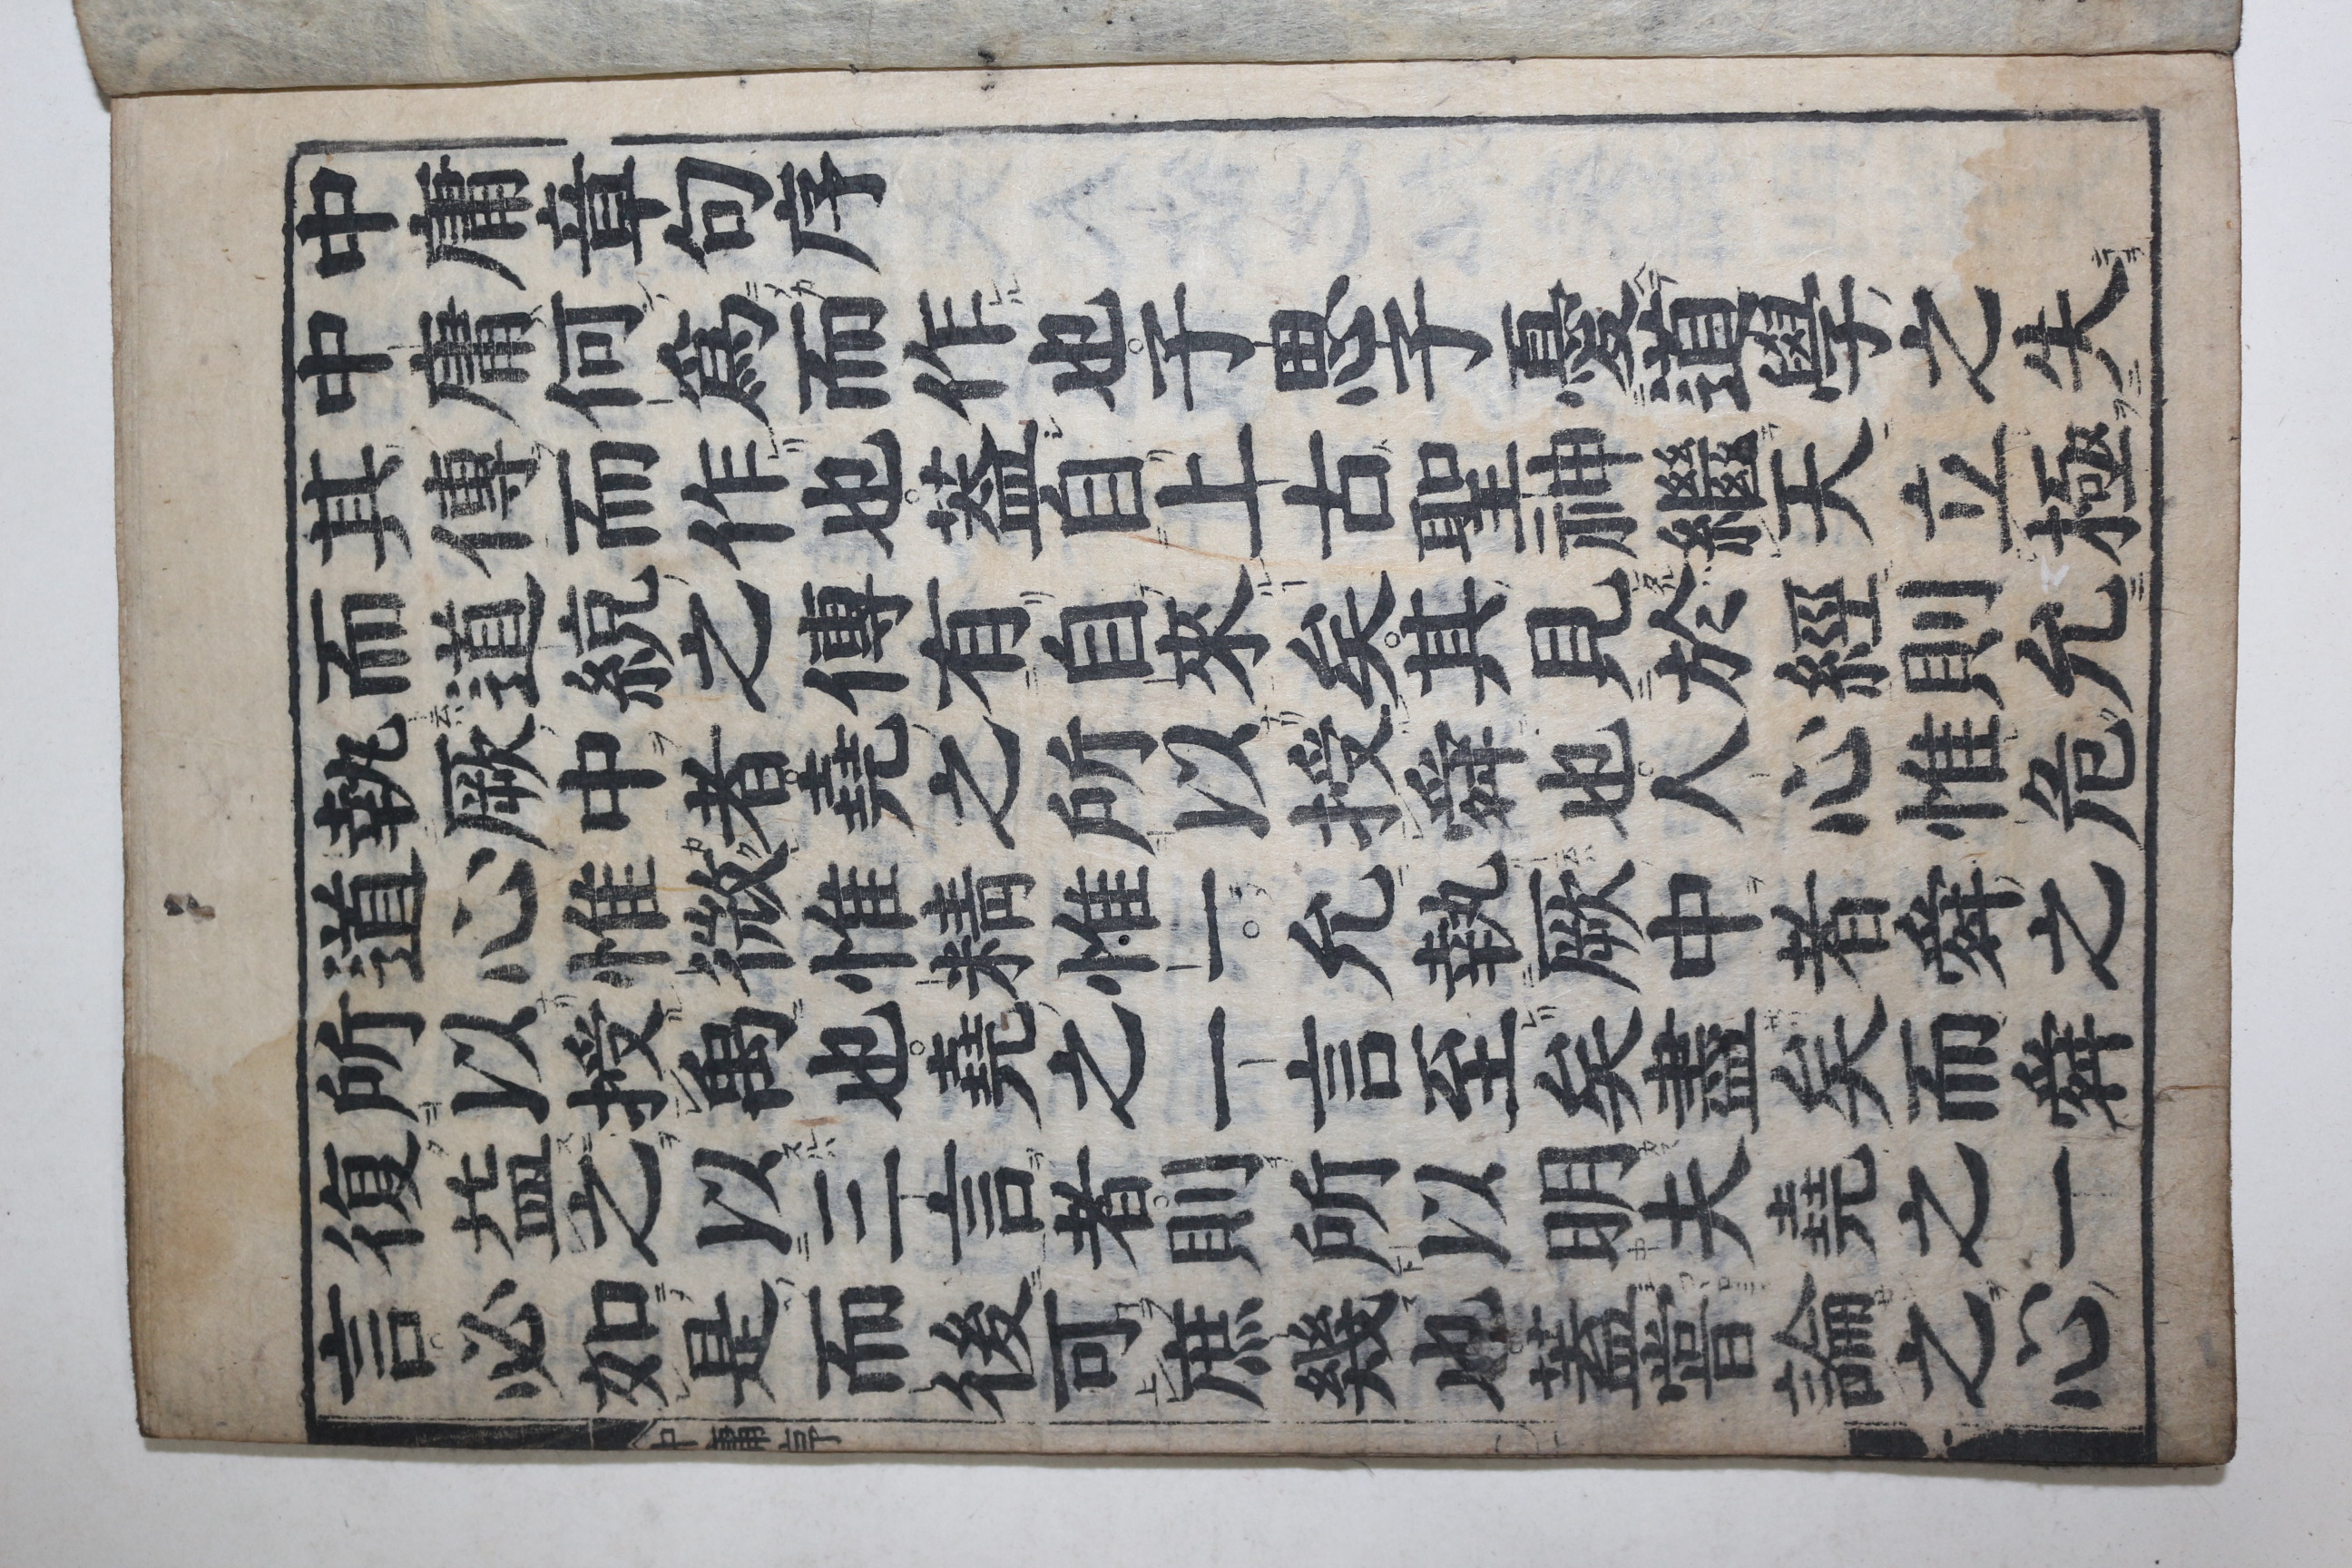 中庸章句序
中庸何爲而作也。子思子憂道學之失
其傳而作也。葢自上古聖神繼天立極
而道統之傳有自來矣。其見於經則允
執厥中者。堯之所以授舜也。人心惟危
道心惟微惟精惟一。允執厥中者舜之
所以授禹也。堯之一言至矣盡矣而舜
復益之以三言者。則所以明夫堯之一
言。必如是而後可庶幾也。蓋嘗論之心
中庸序